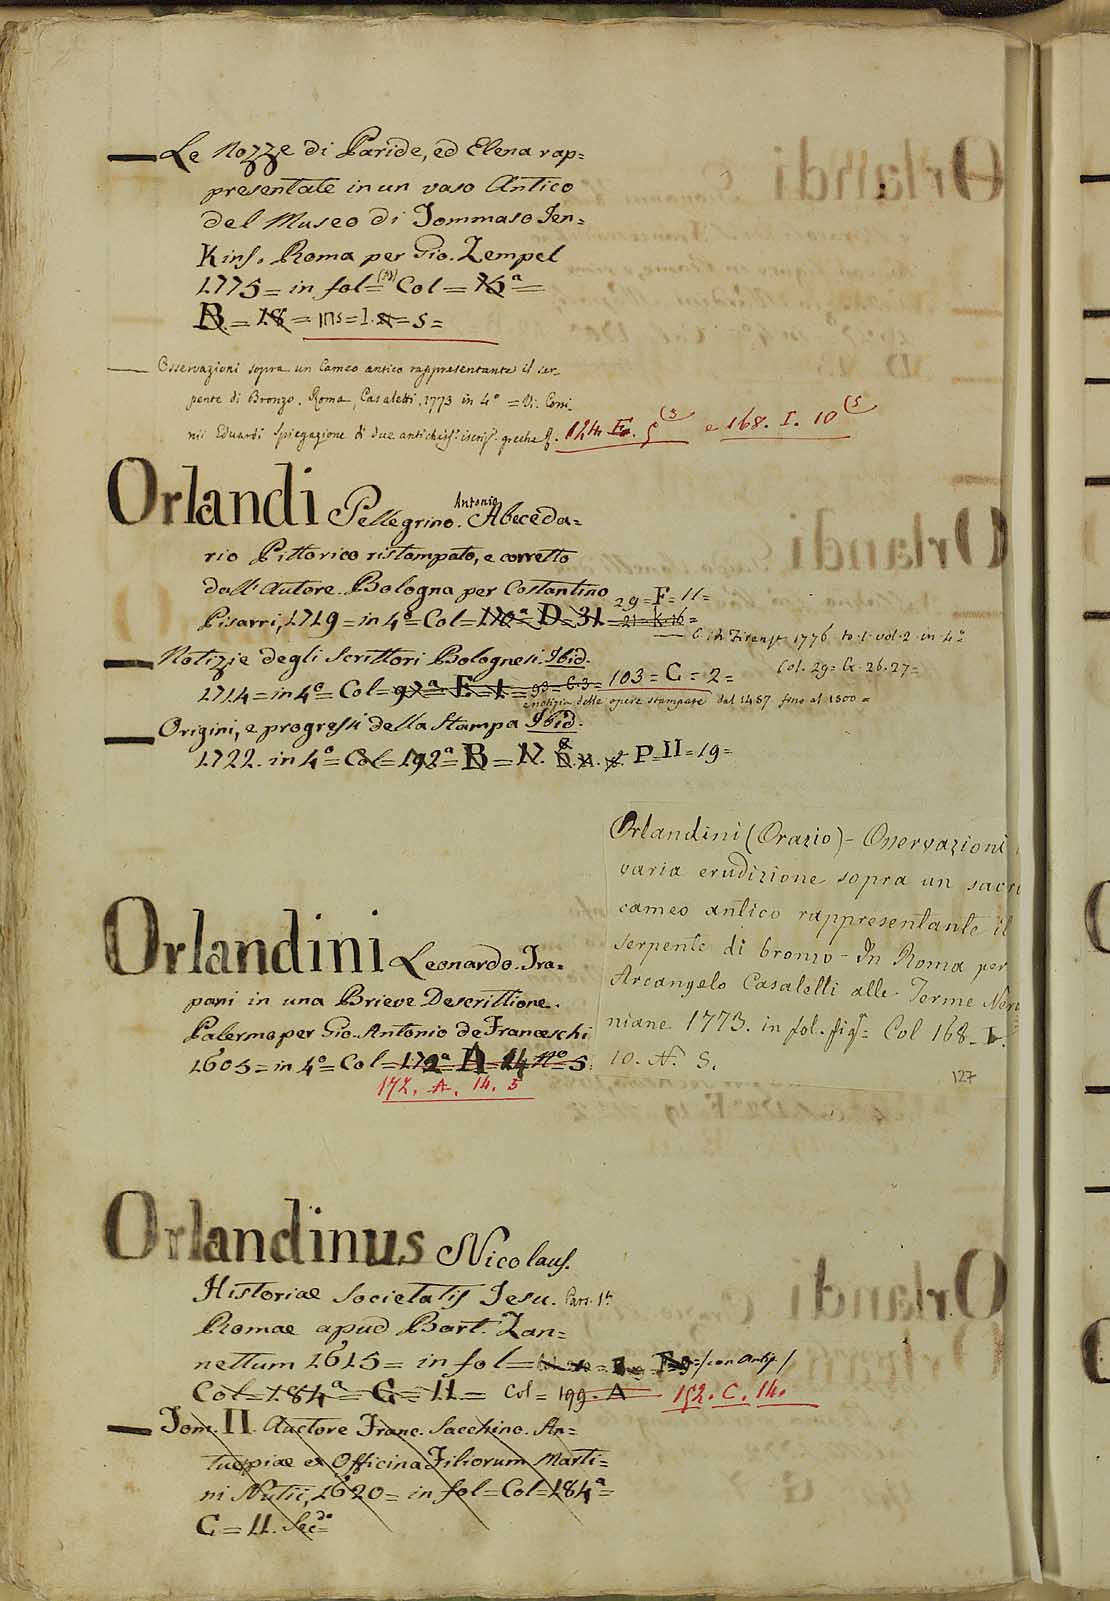 Le Nozze di Paride, ed Elena rap=
presentate in un vaso Antico
del Museo di Tommaso Jen=
Kins. Roma per Gio. Zempel
1775 = in fol = Col = 16ª =
B = 18 = ins = 1. = 5 =
Osservazioni sopra un Cameo antico rappresentante il ser-
pente di Bronzo. Roma, Casaletti, 1773 in 4º = Vi.
Eduardi Spiegazione di due antichiss. iscriz. greche 124. E. 5 (3 e 168. I. 10 (5
Orlandi Pellegrino Antonio. Abeceda=
rio Pittorico ristampato, e corretto
dall'Autore. Bologna per Costantino
Pisarri, 1719 = in 4º = Col = 170ª D = 31 = 21 = K. 16 =
29 = F = 11 =
Firenze 1776 to. 1. vol. 2 in 4º
Col. 29 = G. 26. 27 =
Notizie degli Scrittori Bolognesi. Ibid.
1714 = in 4º = Col = 97ª = E = 1 = 99 = C. 3 = 103 = C = 2 =
e notizia delle opere stampate dal 1457. fino al 1500 =
Origini, e progressi della Stampa Ibid.
1722. in 4º = Col = 192ª = B = 17. P = II = 19 =
Orlandini (Orazio) - Osservazioni
varia erudizione sopra un sacro
cameo antico rappresentante il
serpente di bronzo - In Roma per
Arcangelo Casaletti alle Terme Nero
niane 1773. in fol. fig. = Col 168. I.
10. N. 5.
127
Orlandini Leonardo. Tra=
pani in una Brieve Descrittione.
Palermo per Gio. Antonio de Franceschi
1605 = in 4º = Col = 172ª A 14 Nº 5.
172. A. 14. 5
Orlandinus Nicolaus.
Historiae Societatis Jesu. Pars. 1ª
Romae apud Bart. Zan=
nettum 1615 = in fol = / con Antip. /
Col = 184ª = G = 11 = Col = 199. A 152. C. 14.
Tom. II. Auctore Franc. Sacchino. An=
tuerpiae ex Officina Filiorum Marti=
ni Nutii, 1620 = in fol = Col = 184ª =
G = 11. Secdo =